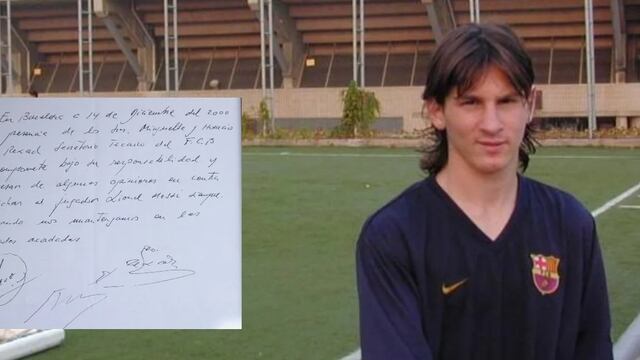 En Barcelona a 14 de Diciembre del 2000
presencia de los Srs. Minguella y Horacio
Rexach Secretario Tecnico del F.C.B
compromete bajo su responsabilidad y
de algunas opiniones en contra
fichar al jugador Lionel Messi
nos mantengamos en las
acordadas